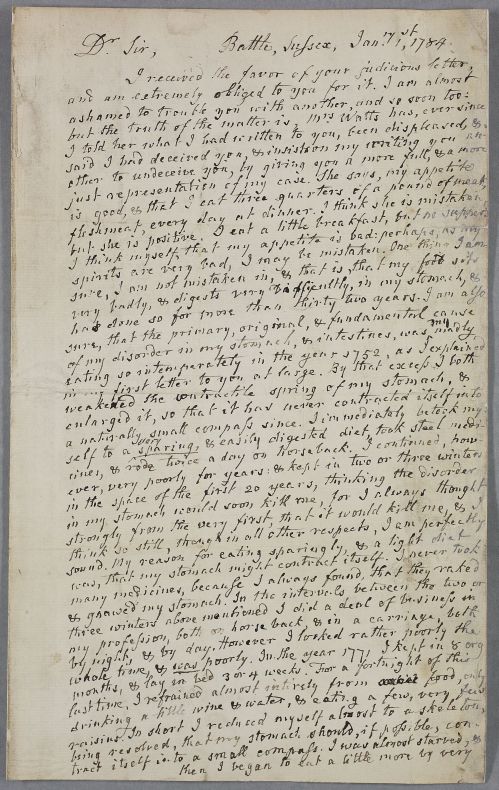 Dr. Sir, Battle, Sussex, Jan. 71st, 1784.
I received the favor of your judicious letter,
and am extremely obliged to you for it. I am almost
ashamed to trouble you with another, and so soon too:
but the truth of the matter is, Mrs Watts has, ever since
I told her what I had written to you, been displeased, &
said I had deceived you, & insists on my writing you an-
other to undeceive you, by giving you a more full, & a more
just representation of my case. She says, my appetite
is good, & that I eat three quarters of a pound of meat,
fleshmeat, every day at dinner. I think she is mistaken,
but she is positive. I eat a little breakfast, but no supper.
I think myself, that my appetite is bad: perhaps, as my
spirits are very bad, I may be mistaken. One thing I am
sure, I am not mistaken in, & that is, that my food sits
very badly, & digests very difficultly, in my stomach, &
has done so for more than thirty two years. I am also
sure, that the primary, original, & fundamental cause
of my disorder in my stomach, & intestines, was my madly
eating so intemperately in the year 1752, as I explained
in my first letter to you at large. By that excess I both
weakened the contractile spring of my stomach, &
enlarged it, so that it has never contracted itself into
a naturally small compass since. I immediately betook my-
self to a very sparing, & easily digested diet, took steel medi-
cines, & rode twice a day on horseback. I continued, how-
ever, very poorly for years: & kept in two or three winters
in the space of the first 20 years, thinking the disorder
in my stomach would soon kill me, for I always thought
strongly from the very first, that it would kill me, & I
think so still, though in all other respects, I am perfectly
sound. My reason for eating sparingly, & a light diet
was, that my stomach might contract itself. I never took
many medicines, because I always found, that they raked
& gnawed my stomach. In the intervals between the two or
three winters above mentioned I did a deal of business in
my profession, both on horse back, & in a carriage, both
by night, & by day. However I looked rather poorly the
whole time, & was poorly. In the year 1771 I kept in 8 or 9
months, & lay in bed 3 or 4 weeks. For a fortnight of this
last time, I refrained almost intirely from food, only
drinking a little wine & water, & eating a few, very few
raisins. In short I reduced myself almost to a skeleton,
being resolved, that my stomach should, if possible, con-
tract itself into a small compass. I was almost starved, &
then I began to eat a little more by very